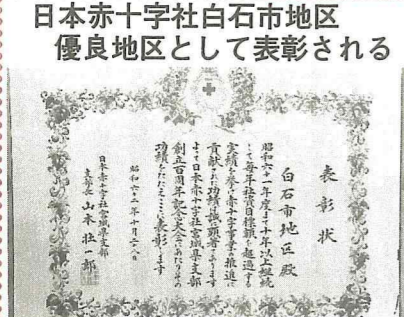 日本赤十字社白石市地区
優良地区として表彰される
表彰状
白石市地区殿
昭和六十一年度まで十年以上継続
して毎年社資目標額を超過する
実績を挙げ赤十字事業の推進に
貢献された功績は誠に顕著であります
よって日本赤十字社宮城県支部
創立百周年記念大会にあたりその
功績をたたえここに表彰します
昭和六十二年十月二八日
日本赤十字社宮城県支部
支部長 山本壮一郎